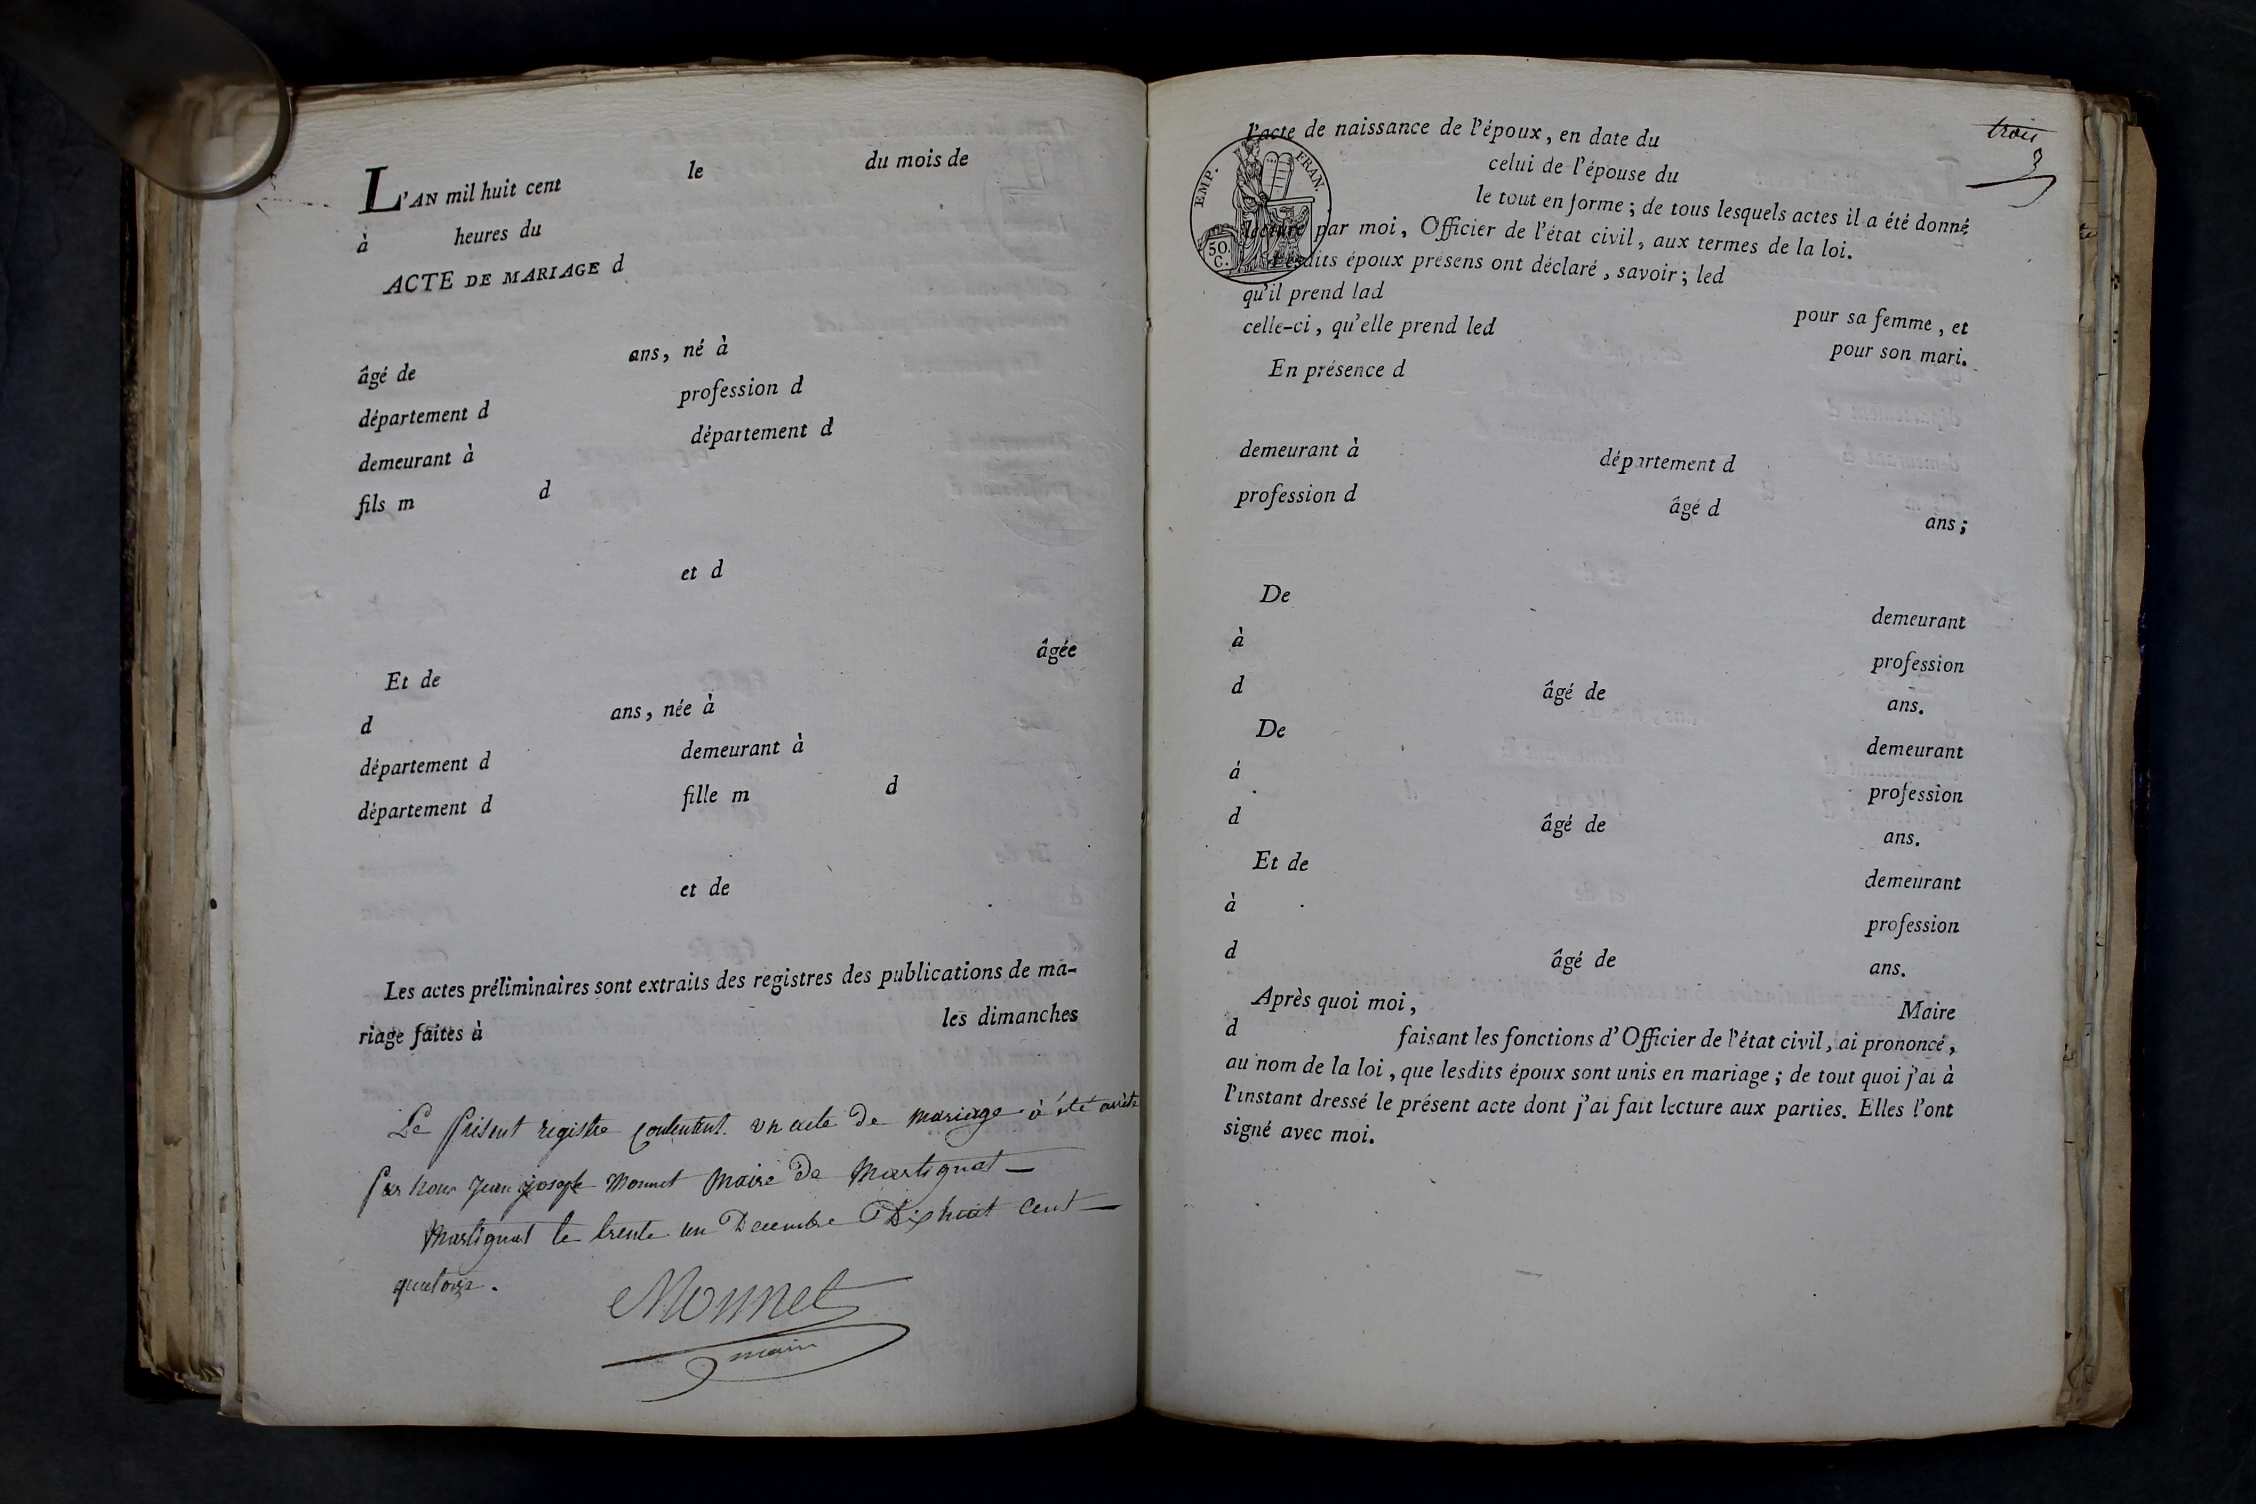 L'AN mil huit cent le du mois de
à heures du
ACTE DE MARIAGE d
âgé de ans, né à
département d profession d
demeurant à département d
fils m d
et d
Et de âgée
d ans, née à
département d demeurant à
département d fille m d
et de
Les actes préliminaires sont extraits des registres des publications de ma-
riage faites à les dimanches
Le présent registre contentent un acte de mariage à été arrêté
par nous jean joseph Monnet Maire de Martignat
Martignat le trente un Decembre Dix huit cent
quatorze.
Monnet
maire
trois
3
l'acte de naissance de l'époux, en date du
celui de l'épouse du
le tout en forme ; de tous lesquels actes il a été donné
lecture par moi, Officier de l'état civil, aux termes de la loi.
Lesdits époux présens ont déclaré, savoir ; led
qu'il prend lad pour sa femme, et
celle-ci, qu'elle prend led pour son mari.
EMP. FRAN.
50.
C.
En présence d
demeurant à département d
profession d âgé d ans ;
De demeurant
à profession
d âgé de ans.
De demeurant
à profession
d âgé de ans.
Et de demeurant
à profession
d âgé de ans.
Après quoi moi, Maire
d faisant les fonctions d'Officier de l'état civil, ai prononcé,
au nom de la loi, que lesdits époux sont unis en mariage ; de tout quoi j'ai à
l'instant dressé le présent acte dont j'ai fait lecture aux parties. Elles l'ont
signé avec moi.